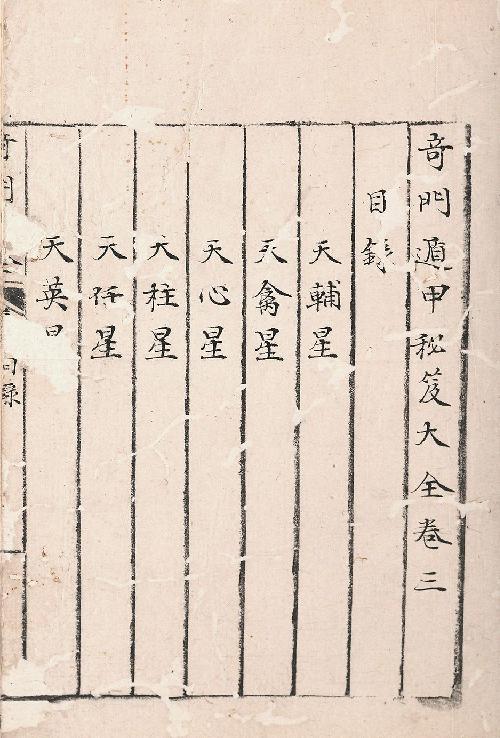 奇門遁甲秘笈大全卷三
目錄
天輔星
天禽星
天心星
天柱星
天任星
天英星
奇門
目錄